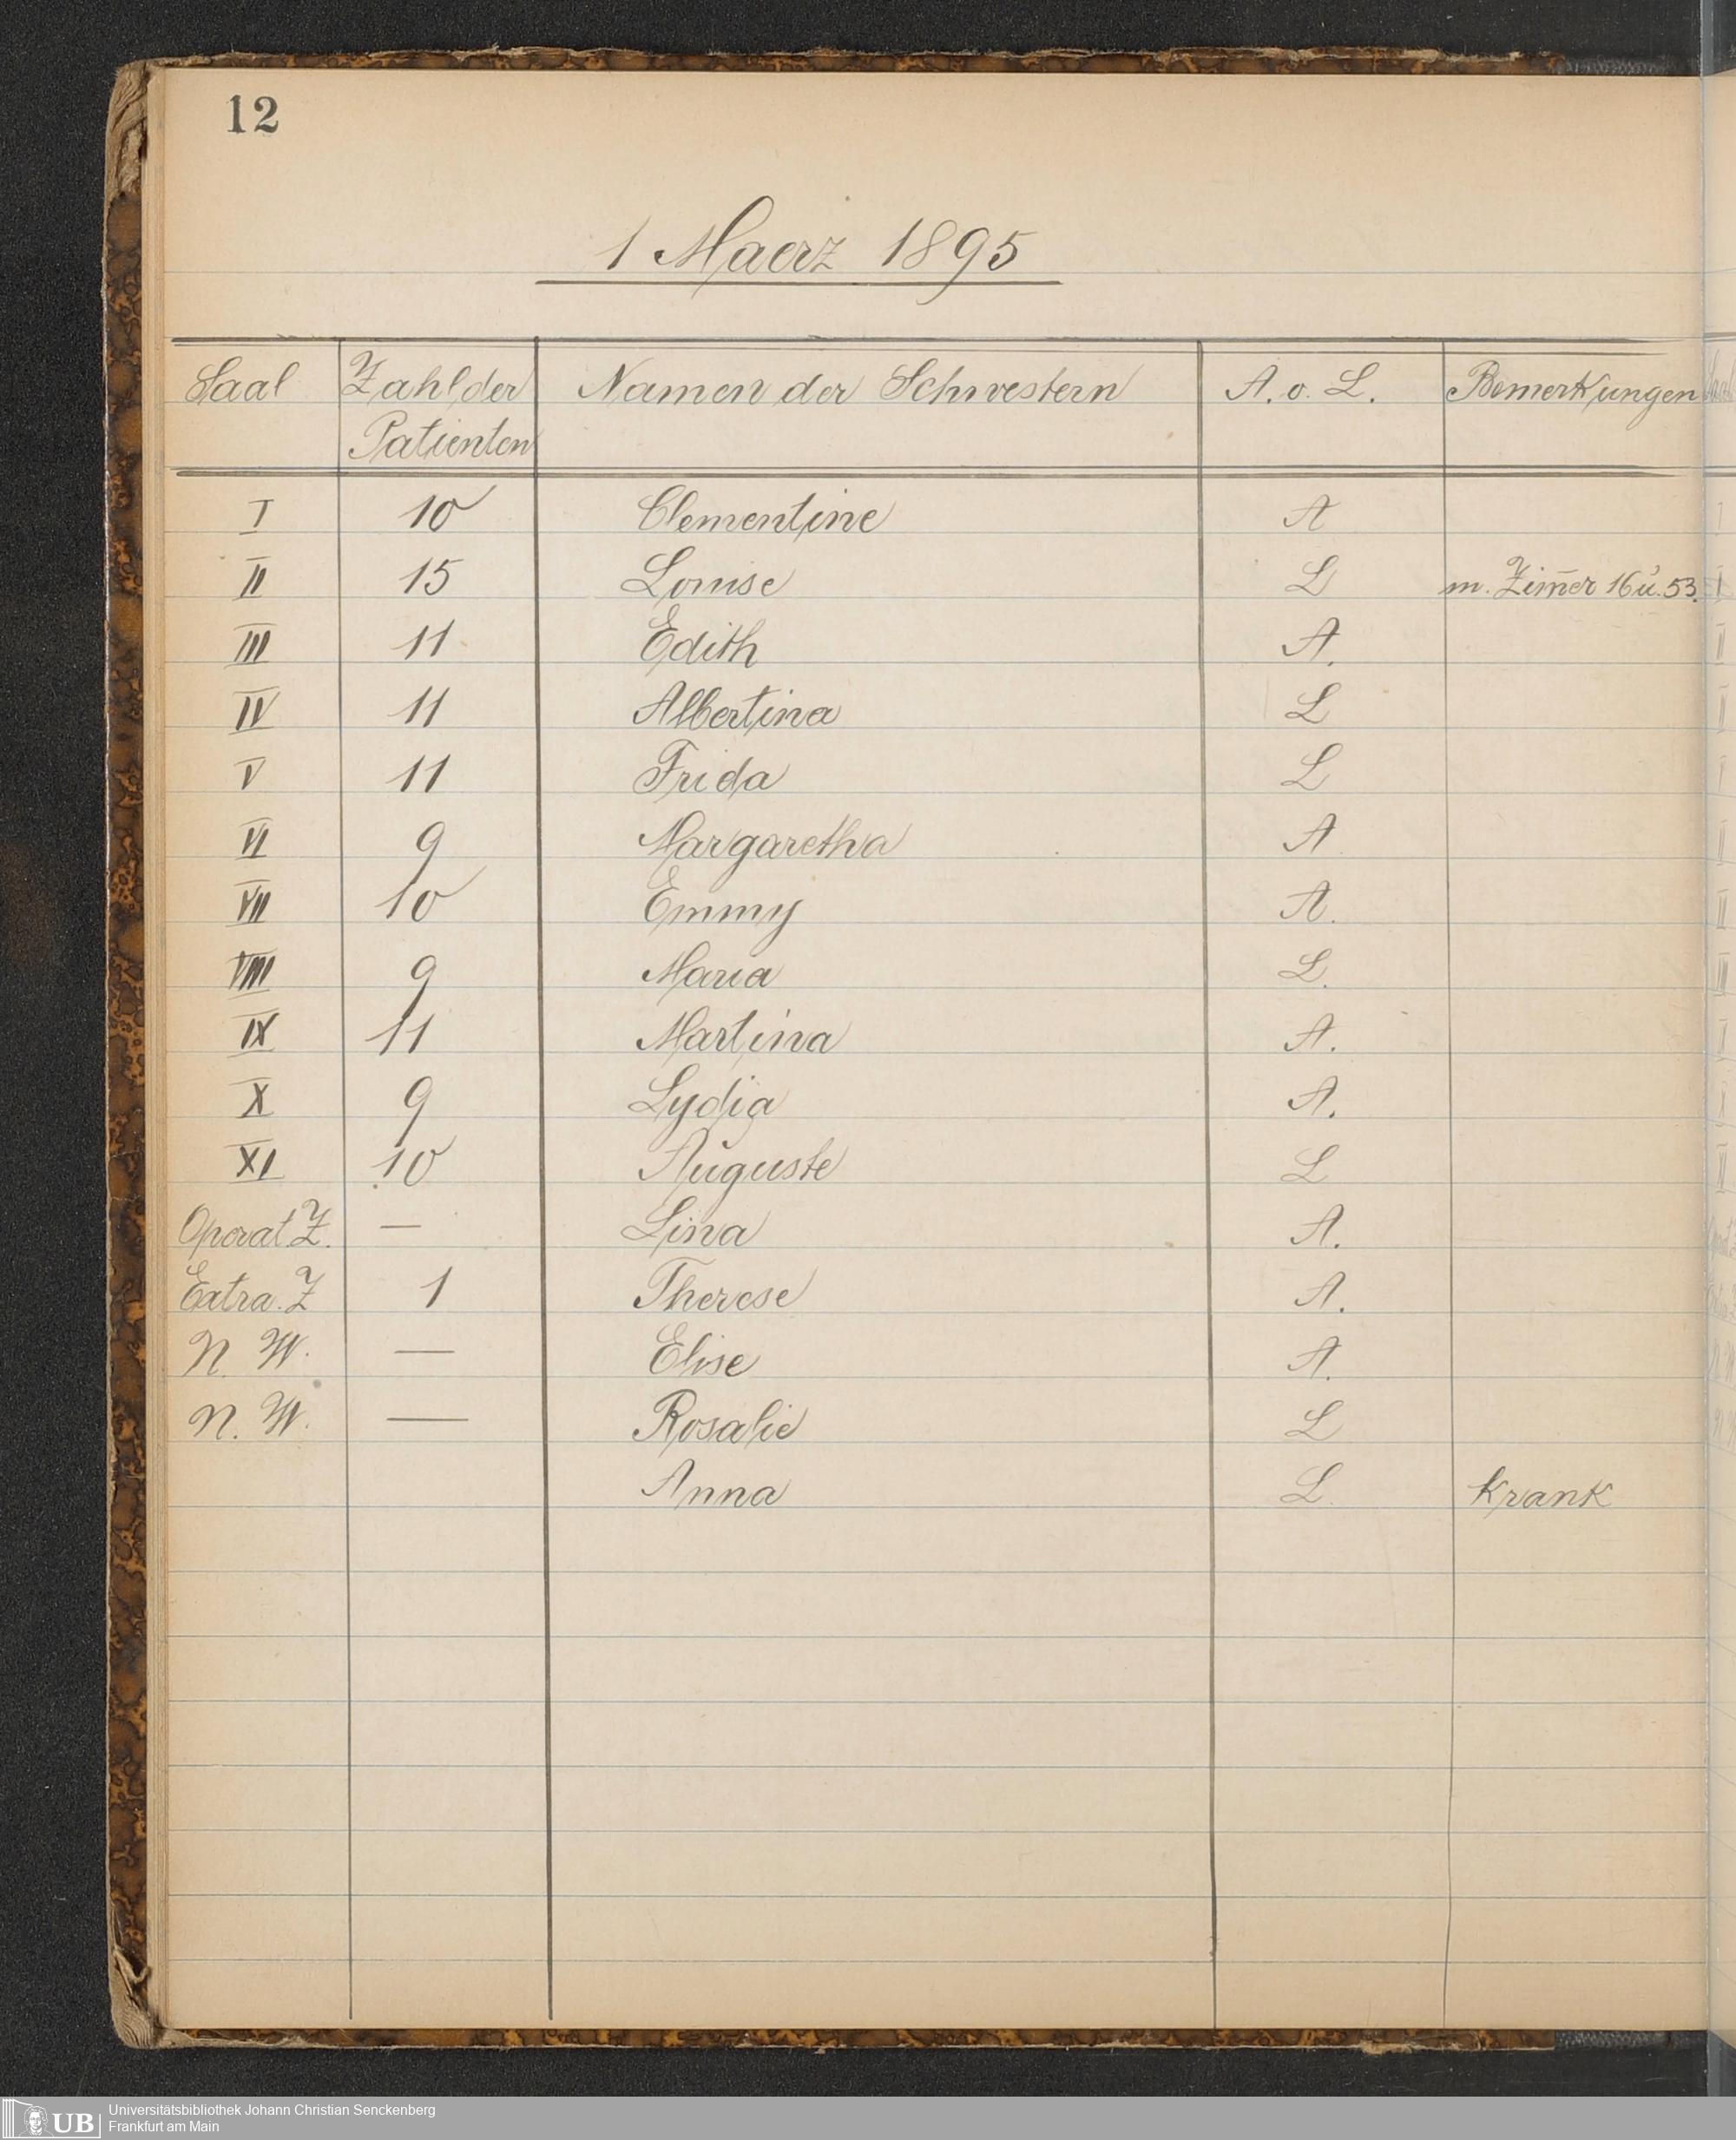 12
1 Maerz 1895
Saal Zahl der Patienten Namen der Schwestern A. o. L. Bemerkungen
I 10 Clementine A
II 15 Louise L m. Zim̄er 16 u. 53.
III 11 Edith A.
IV 11 Albertina L
V 11 Frida L
VI 9 Margaretha A
VII 10 Emmy A.
VIII 9 Maria L.
IX 11 Martina A.
X 9 Lydia A.
XI 10 Auguste L
Operat. Z. — Lina A.
Extra. Z 1 Therese A.
N. W. — Elise A.
N. W. — Rosalie L
Anna L. krank
UB Universitätsbibliothek Johann Christian Senckenberg
Frankfurt am Main